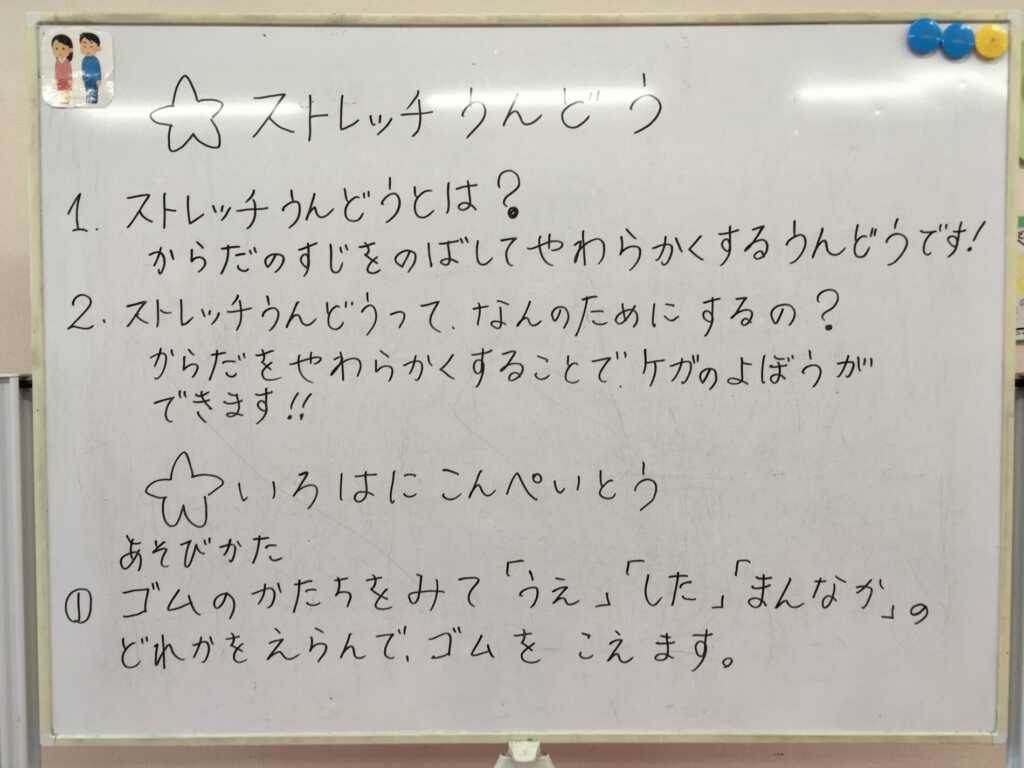 ☆ストレッチうんどう
1. ストレッチうんどうとは?
からだのすじをのばしてやわらかくするうんどうです!
2. ストレッチうんどうって、なんのためにするの?
からだをやわらかくすることで、ケガのよぼうが
できます!!
☆いろはにこんぺいとう
あそびかた
① ゴムのかたちをみて「うえ」「した」「まんなか」の
どれかをえらんで、ゴムをこえます。